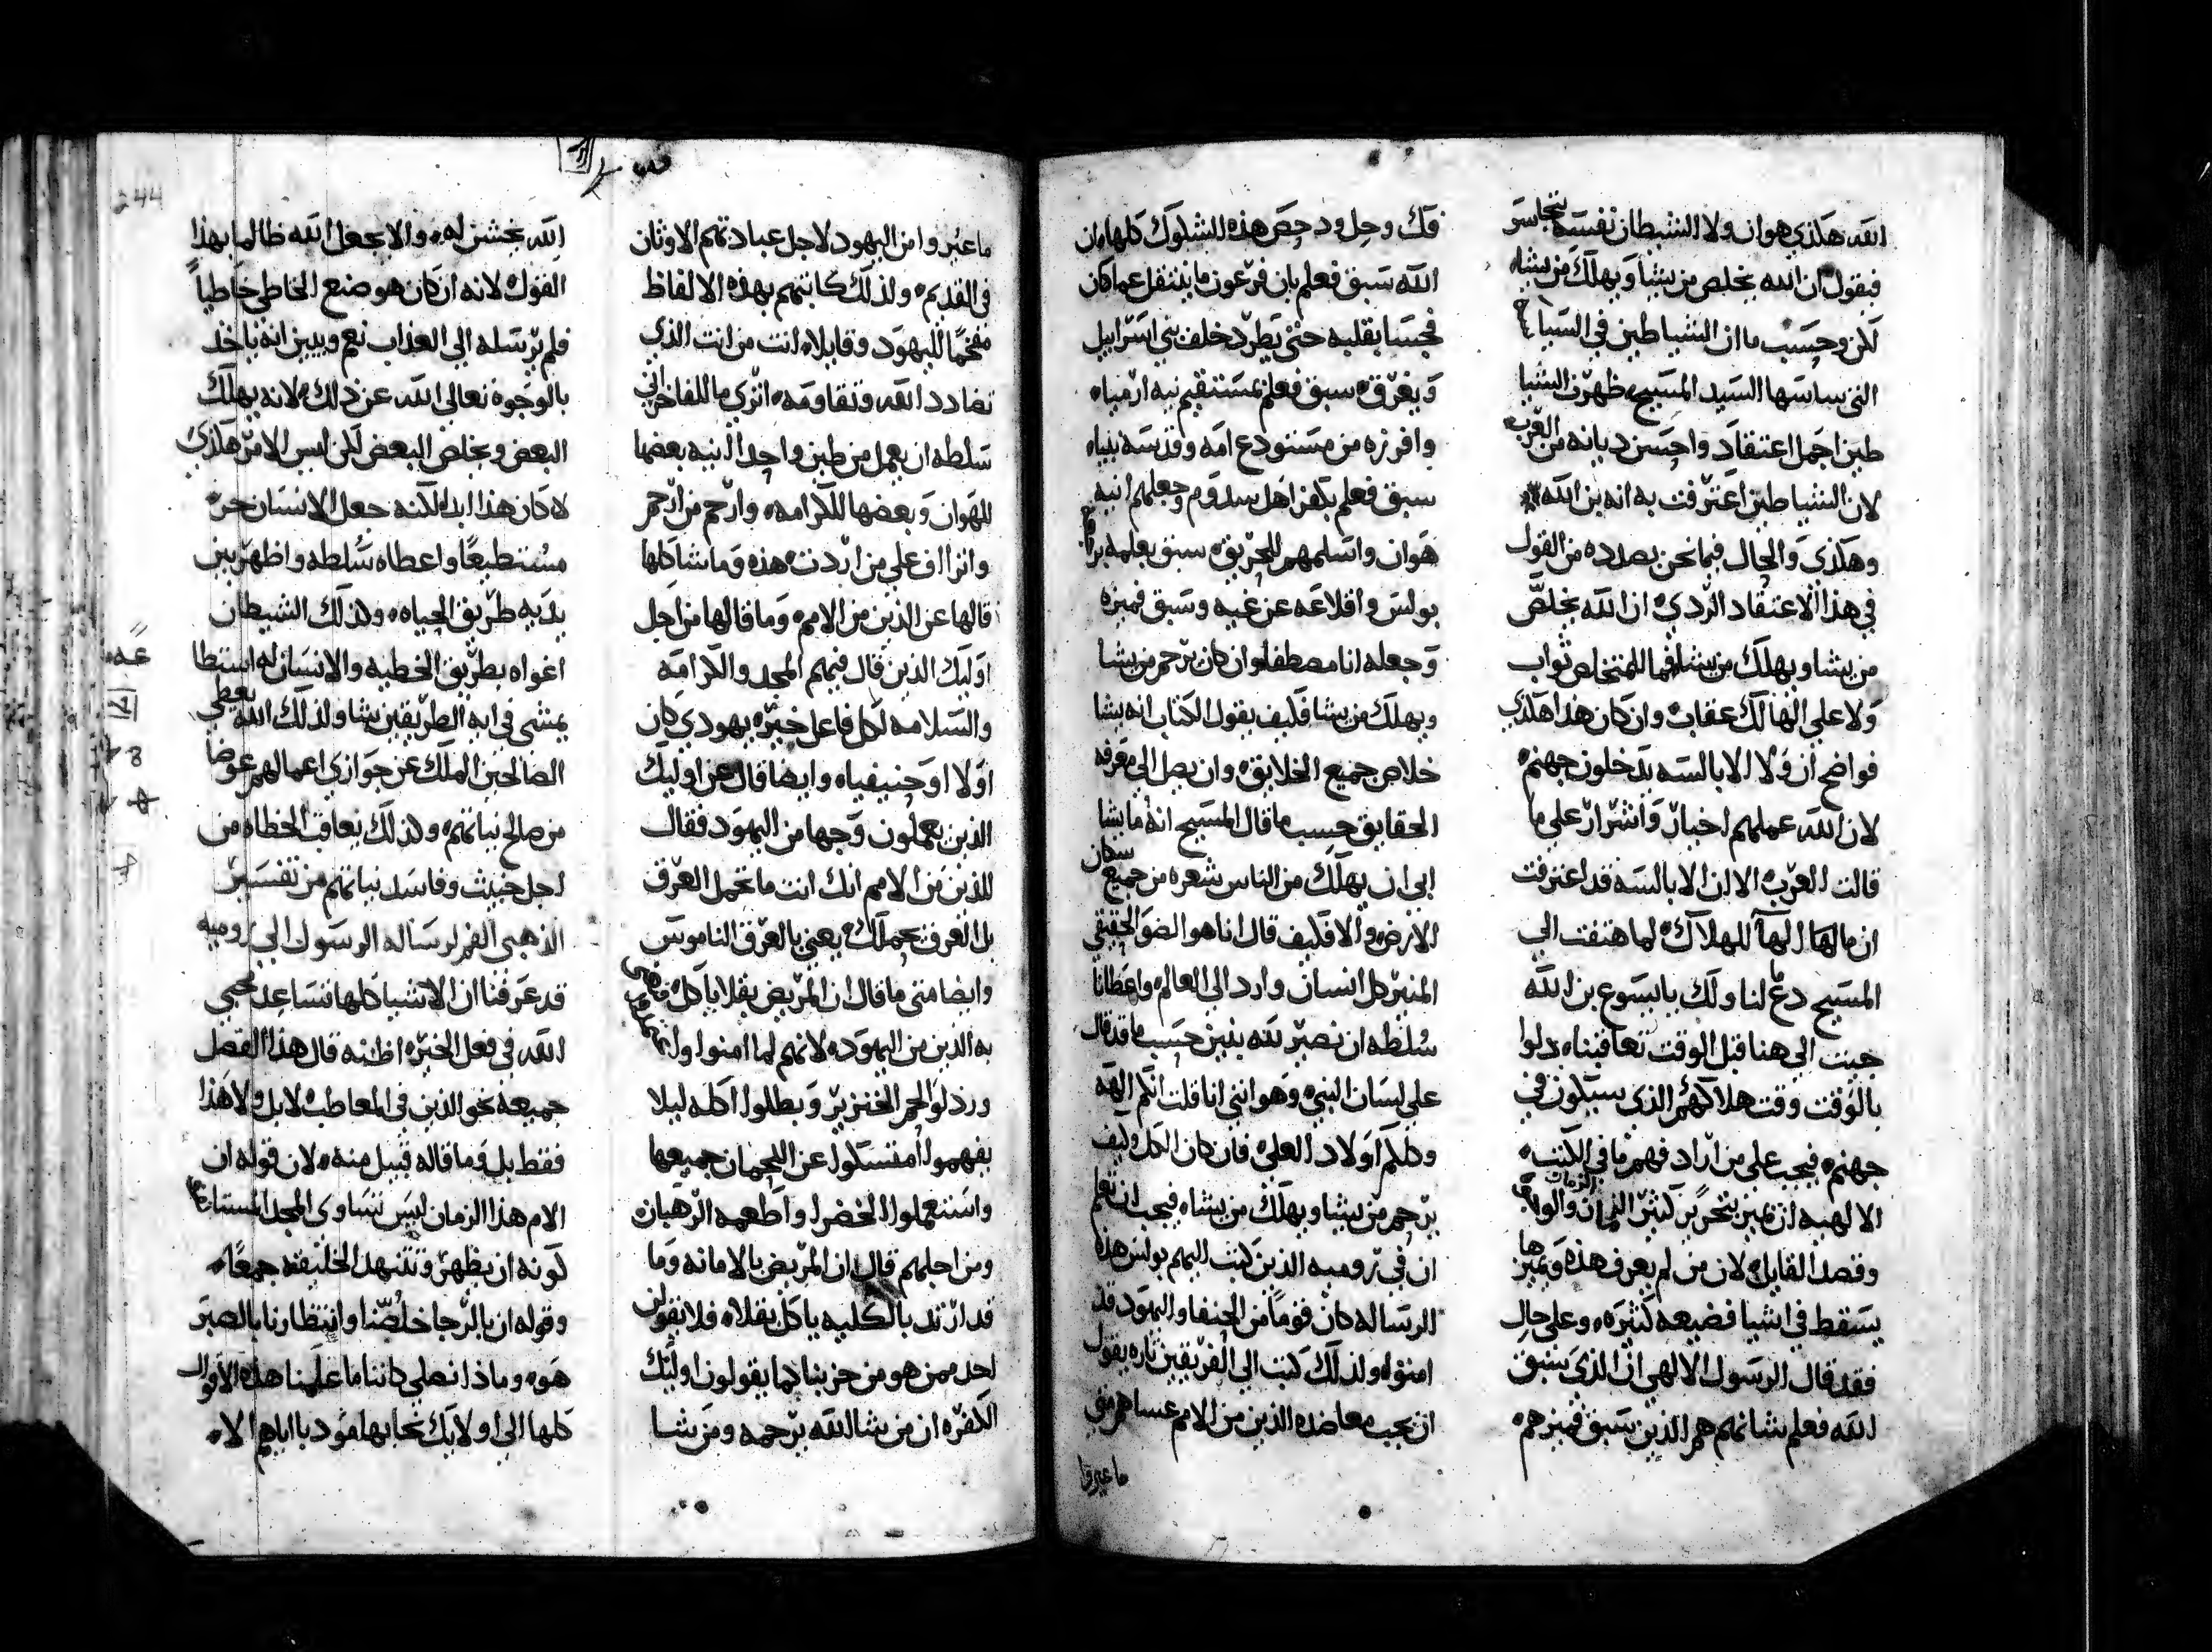 الله هكذي هو ان ولا الشيطان نفسه يتجاسر
فيقول ان الله يخلص من يشا ويهلك من يشاء
لكن وحسب ما ان الشياطين في السبا
التي ساسها السيد المسيح، ظهرت الشيا
طين اجمل اعتقاد واحسن ديانه من العرب
لان الشياطين اعترفت به انه بن الله
وهكذي والحال فيما نحن بصدده من القول
في هذا الاعتقاد الردي، ان الله يخلص
من يشا ويهلك من يشا فما للمتخلص ثواب
ولا على الهالك عقاب، وان كان هذا هكذي
فواضح ان ولا الابالسه يدخلون جهنم،
لان الله عملهم اخيار واشرار على ما
قالت العرب، الا ان الابالسه قد اعترفت
ان مالها الها للهلاك، لما هتفت الي
المسيح دع ما لنا ولك يايسوع بن الله
جيت الي هنا قبل الوقت تعاقبنا، دلوا
بالوقت وقت هلاكهم الذي سيكون في
جهنم، فيجب على من اراد فهم ما في الكتب
الالهيه ان يميز بتحرير كثير الزمان والمولاي
وقصد القايل، لان من لم يعرف هذه ويميزها
يسقط في اشيا فضيعه كثيره، وعلى حال
فقد قال الرسول الالهي ان الذي سبق
الله فعلم بشانهم هم الذين سبق فميزهم
فك وحل ودحض هذه الشكوك كلها، ان
الله سبق فعلم بان فرعون ما ينتقل عما كان
فجسا بقلبه حتى يطرد خلف بني اسراييل
ويغرق، سبق فعلم بمستقيم نيه ارمياء
وافرزه من مستودع امه وقدسه بنياء
سبق فعلم بكفر اهل سدوم وجعلهم انيه
هوان واسلمهم للحريق، سبق بعلمه براي
بولس واقلاعه عن غيه وسبق فميزه
وجعله انا مصطفا، وان كان يرحم من يشا
ويهلك من يشا فكيف يقول الكتاب انه يشا
خلاص جميع الخلايق، وان يصل الي معرفه
الحقايق حسب ما قال المسيح انه ما يشا
ابي ان يهلك من الناس شعره من جميع سكان
الارض، والا فكيف قال انا هو الضو الحقيقي
المنير كل انسان وارد الي العالم، واعطانا
سلطه ان نصير لله بنين حسب ما قد قال
على لسان النبي، وهو انني انا قلت انكم الهه
وكلكم اولاد العلي، فان كان الكل كيف
يرحم من يشا ويهلك من يشاء، فيجب ان نعلم
ان في روميه الذين كتب اليهم بولس هذه
الرساله كان قوما من الحنفا واليهود قد
امنوا، ولذلك كتب الي الفريقين تاره يقول
ان يجب معاضده الذين من الامم عساهم متي
ما عيروا
ما عيروا من اليهود لاجل عبادتهم الاوثان
في القديم، ولذلك كاتبهم بهذه الالفاظ
مفحما لليهود وقايلا، انت من انت الذي
تضادد الله وتقاومه، اتري ما للفاخراني
سلطه ان يعمل من طين واحد انيه بعضها
للهوان وبعضها للكرامه، وارحم من ارحم
واتراف على من اردت، هذه وما شاكلها
قالها عن الذين من الامم، وما قالها من اجل
اوليك الذين قال فيهم المجد والكرامه
والسلامه لكل فاعل خيره يهودي كان
اولا او حنيفيا، وايضا قال عن اوليك
الذين يعملون وجها من اليهود فقال
للذين من الامم انك انت ما تحمل العرق
بل العرق يحملك، يعني بالعرق الناموس
وايضا متي ما قال ان المريض بقلا ياكل،
به الذين من اليهود، لانهم لما امنوا
ورذلوا لحم الخنزير وبطلوا اكله ليلا
يفهموا امتسكوا عن اللحمان جميعها
واستعملوا الخضر او اطعمه الرهبان
ومن اجلهم قال ان المريض بالامانه وما
قد ارتد بالكليه ياكل بقلا، فلا يقولن
احد ممن هو من حزبنا كما يقولون اوليك
الكفره ان من يشا الله يرحمه ومن يشا
الله يخشن له، والا يجعل الله ظالما بهذا
القول، لانه ان كان هو صنع الخاطي خاطيا
فلم يرسله الي العذاب، نعم ويبين انه ياخذ
بالوجوه تعالي الله عن ذلك، لانه يهلك
البعض ويخلص البعض لكن ليس الامر هكذي
لا كان هذا ابدا لكنه جعل الانسان حره
مستطيعا واعطاه سلطه واظهر بين
يديه طريق الحياه، وكذلك الشيطان
اغواه بطريق الخطيه والانسان له استطا
يمشي في ايه الطريقين يشا، ولذلك الله يعطي
الصالحين الملك عن جوازي اعمالهم عوضا
من صالح نياتهم، وكذلك يعاقب الخطاه من
اجل خبيث وفاسد نياتهم من تفسير
الذهبي الفم لرساله الرسول الي روميه
قد عرفنا ان الاشيا كلها تساعد محبي
الله في فعل الخيره اظنه قال هذا الفصل
جميعه نحو الذين في المعاطب، لا بل ولا هذا
فقط بل وما قاله قبيل منه، لان قوله ان
الام هذا الزمان ليس تساوي المجد المستانف
كونه ان يظهر وتتنهد الخليقه جمعا،
وقوله ان بالرجا خلصنا وانتظارنا بالصبر
هو، وماذا نصلي كاننا ما علمنا هذه الاقوال
كلها الي اولايك نحا بها مود باا اياهم الا